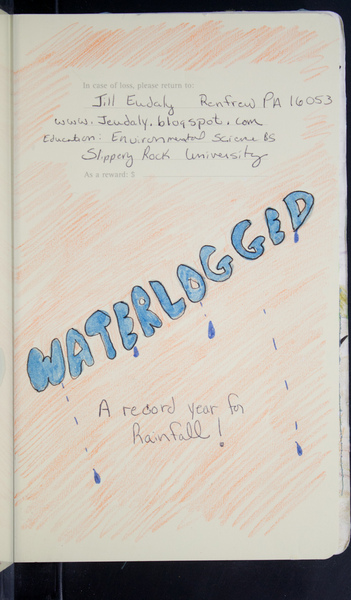 In case of loss, please return to:
Jill Eudaly Renfrew PA 16053
www.Jeudaly.blogspot.com
Education: Environmental Science BS
Slippery Rock University
As a reward: $
WATERLOGGED
A record year for
Rainfall!